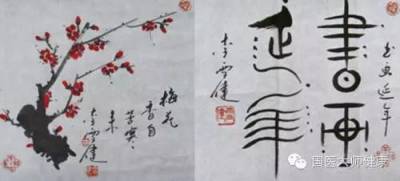 梅花
香自
苦寒
来
李雪健
书画延年
書畫
延年
李雪健
国医大师健康